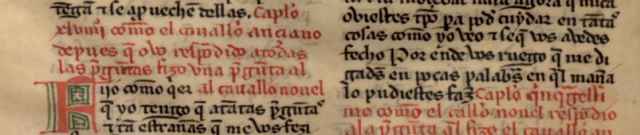 tegan & se aprvechen dellas. Caplo
xlviii como el cauallo anciano
depues que ouo respondido a todas
las pgūtas fizo vna pgūta al
Fijo como qer al cauallo nouel
que yo tengo que a tātas pgūtas
& tā estrañas que me vos fez
ouiestes tpo pa pod cuydar en tātas
cosas como yo veo & se que vos auedes
fecho Por ende vos ruego que me di
gades en pocas palabras en ql mana
lo pudiestes faz Caplo
mo como el callo nouel respōdio
a la pgūta q fizo el cauallo